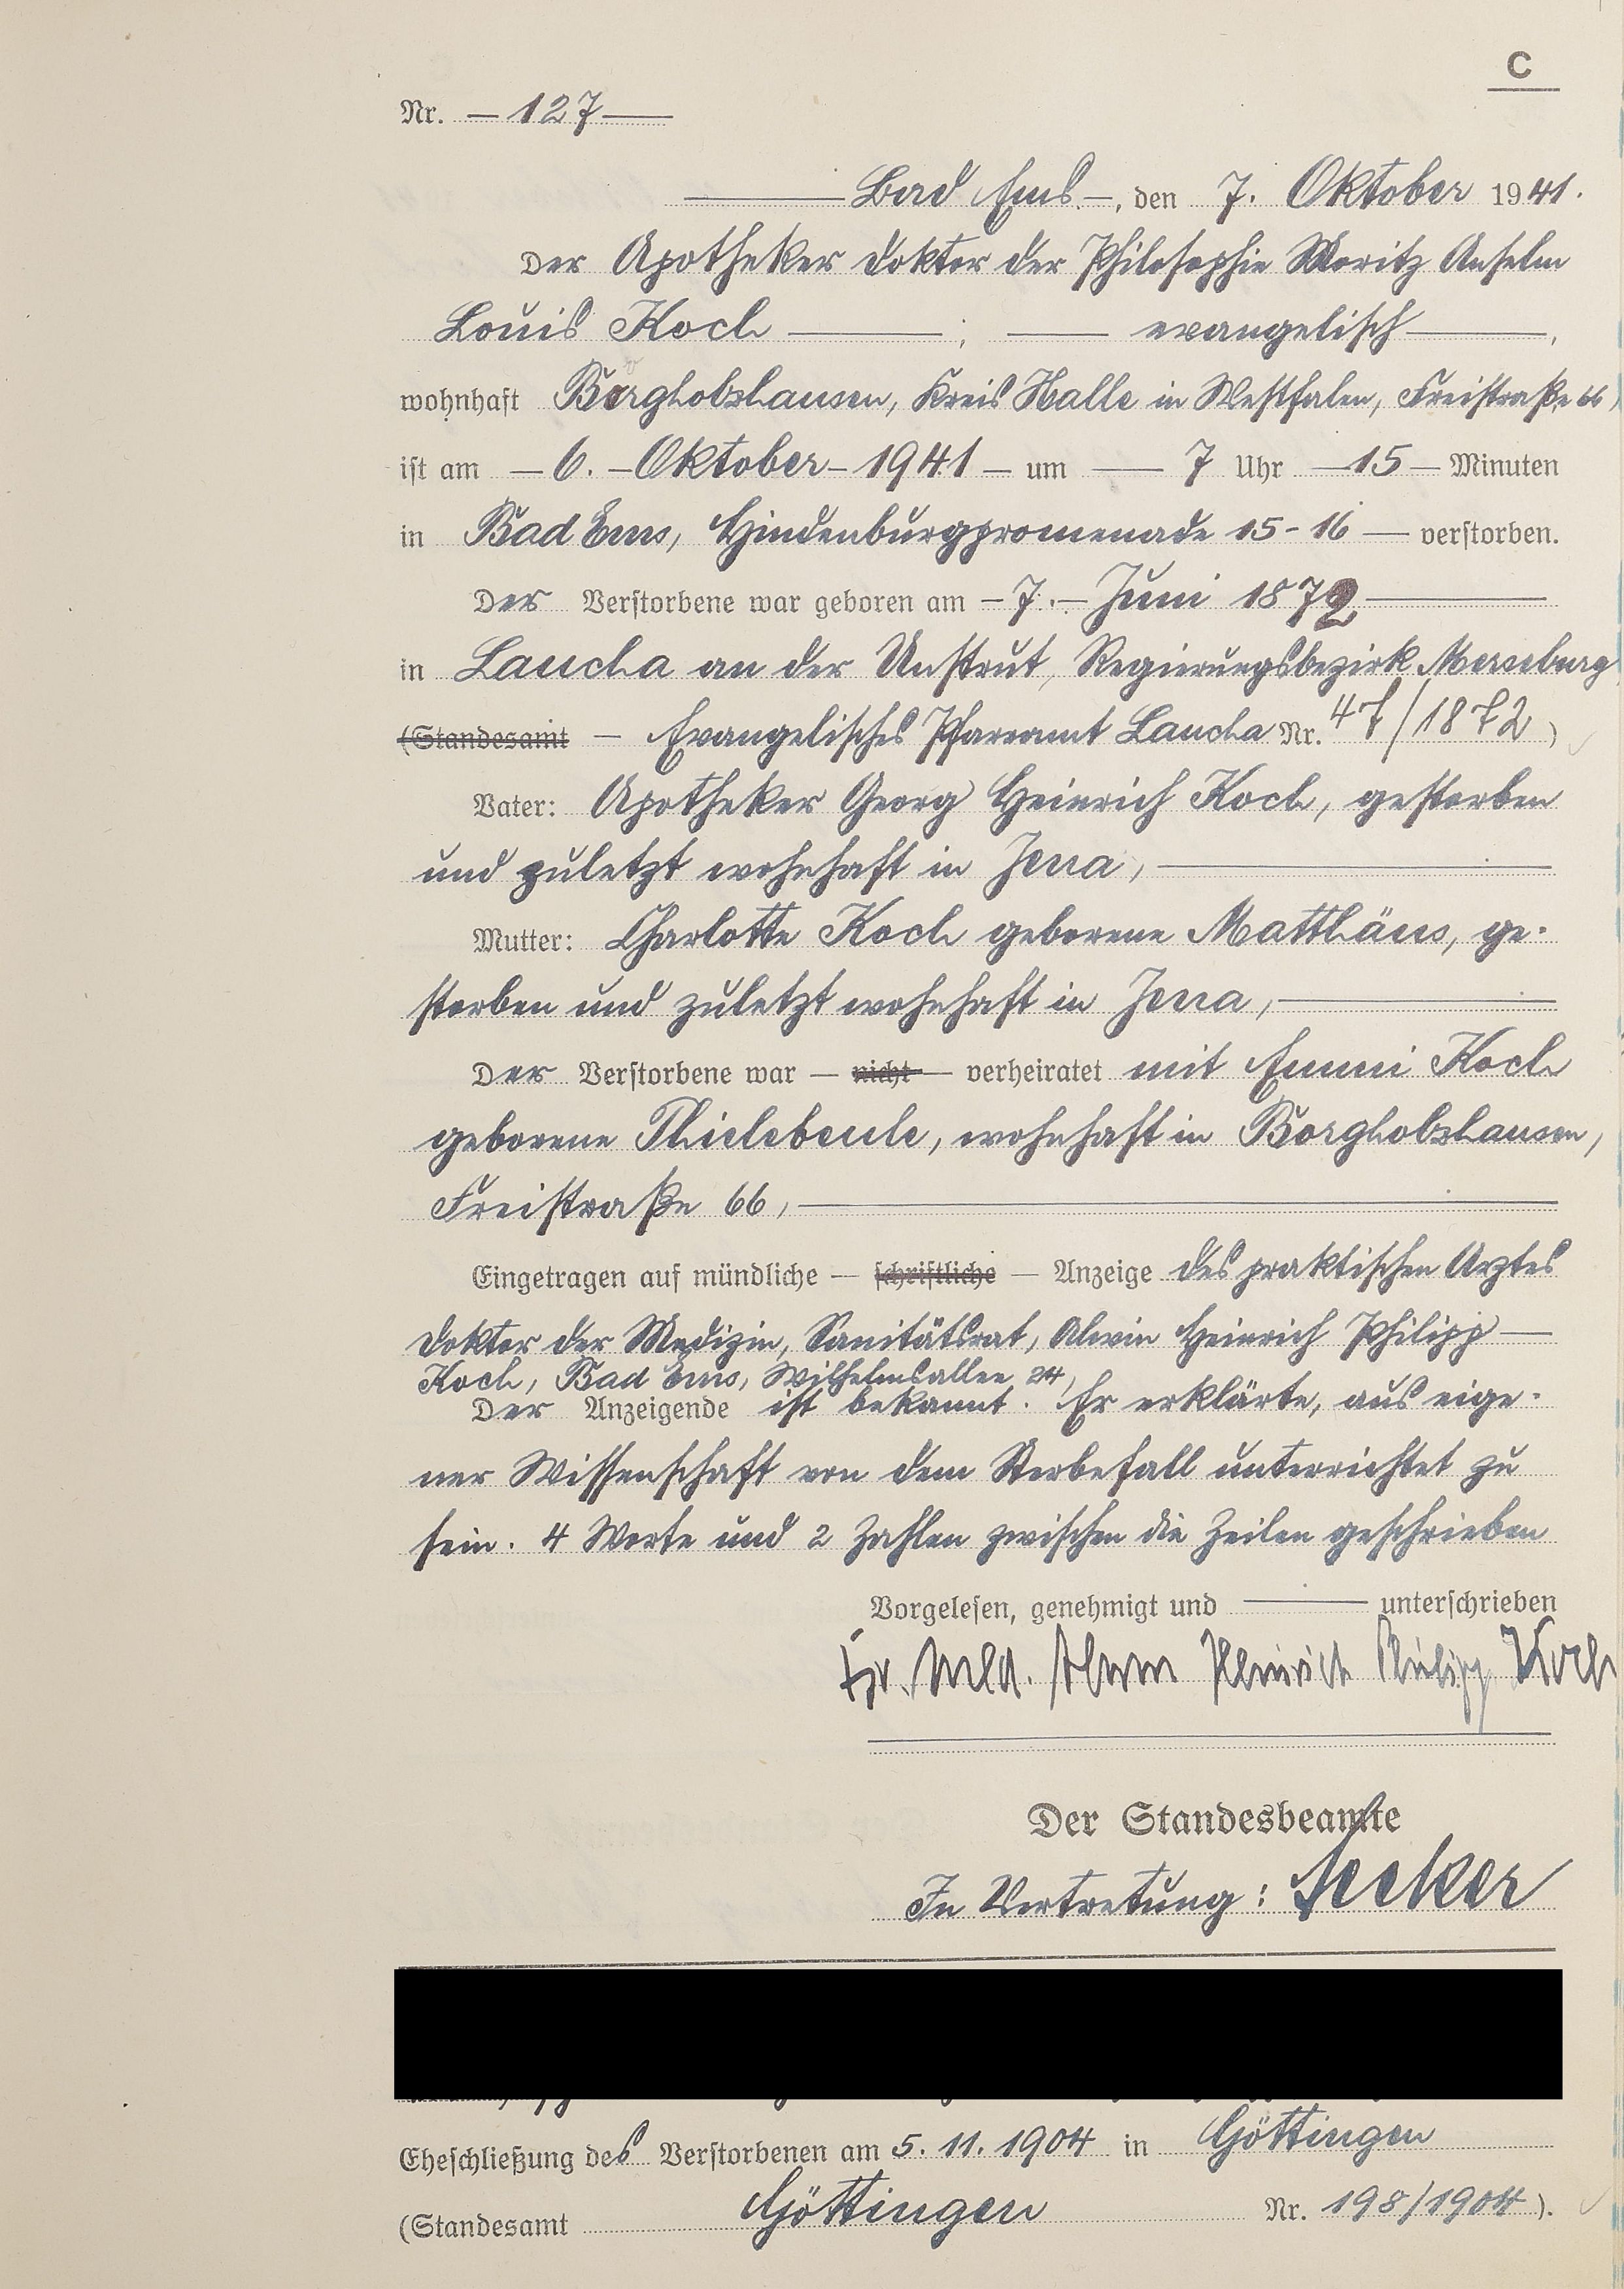 C
Nr. — 127 —
Bad Ems. —, den 7. Oktober 1941.
Der Apotheker Doktor der Philosophie Moritz Anselm
Louis Koch — ; — evangelisch —,
wohnhaft Borgholzhausen, Kreis Halle in Westfalen, Freistraße 66,
ist am — 6. — Oktober — 1941 — um — 7 Uhr — 15 — Minuten
in Bad Ems, Hindenburgpromenade 15-16 — verstorben.
Der Verstorbene war geboren am — 7. — Juni 1872 —
in Laucha an der Unstrut, Regierungsbezirk Merseburg
(Standesamt — Evangelisches Pfarramt Laucha Nr. 47/1872)
Vater: Apotheker Georg Heinrich Koch, gestorben
und zuletzt wohnhaft in Jena, —
Mutter: Charlotte Koch geborene Matthäus, ge-
storben und zuletzt wohnhaft in Jena, —
Der Verstorbene war — nicht — verheiratet mit Emmi Koch
geborene Thielebeule, wohnhaft in Borgholzhausen,
Freistraße 66, —
Eingetragen auf mündliche — schriftliche — Anzeige des praktischen Arztes
Doktor der Medizin, Sanitätsrat, Alwin Heinrich Philipp —
Koch, Bad Ems, Wilhelmsallee 24,
Der Anzeigende ist bekannt. Er erklärte, aus eige-
ner Wissenschaft von dem Sterbefall unterrichtet zu
sein. 4 Worte und 2 Zahlen zwischen die Zeilen geschrieben
Vorgelesen, genehmigt und — unterschrieben
Dr. med. Alwin Heinrich Philipp Koch
Der Standesbeamte
In Vertretung:
Eheschließung des Verstorbenen am 5. 11. 1904 in Göttingen
(Standesamt Göttingen Nr. 198/1904).